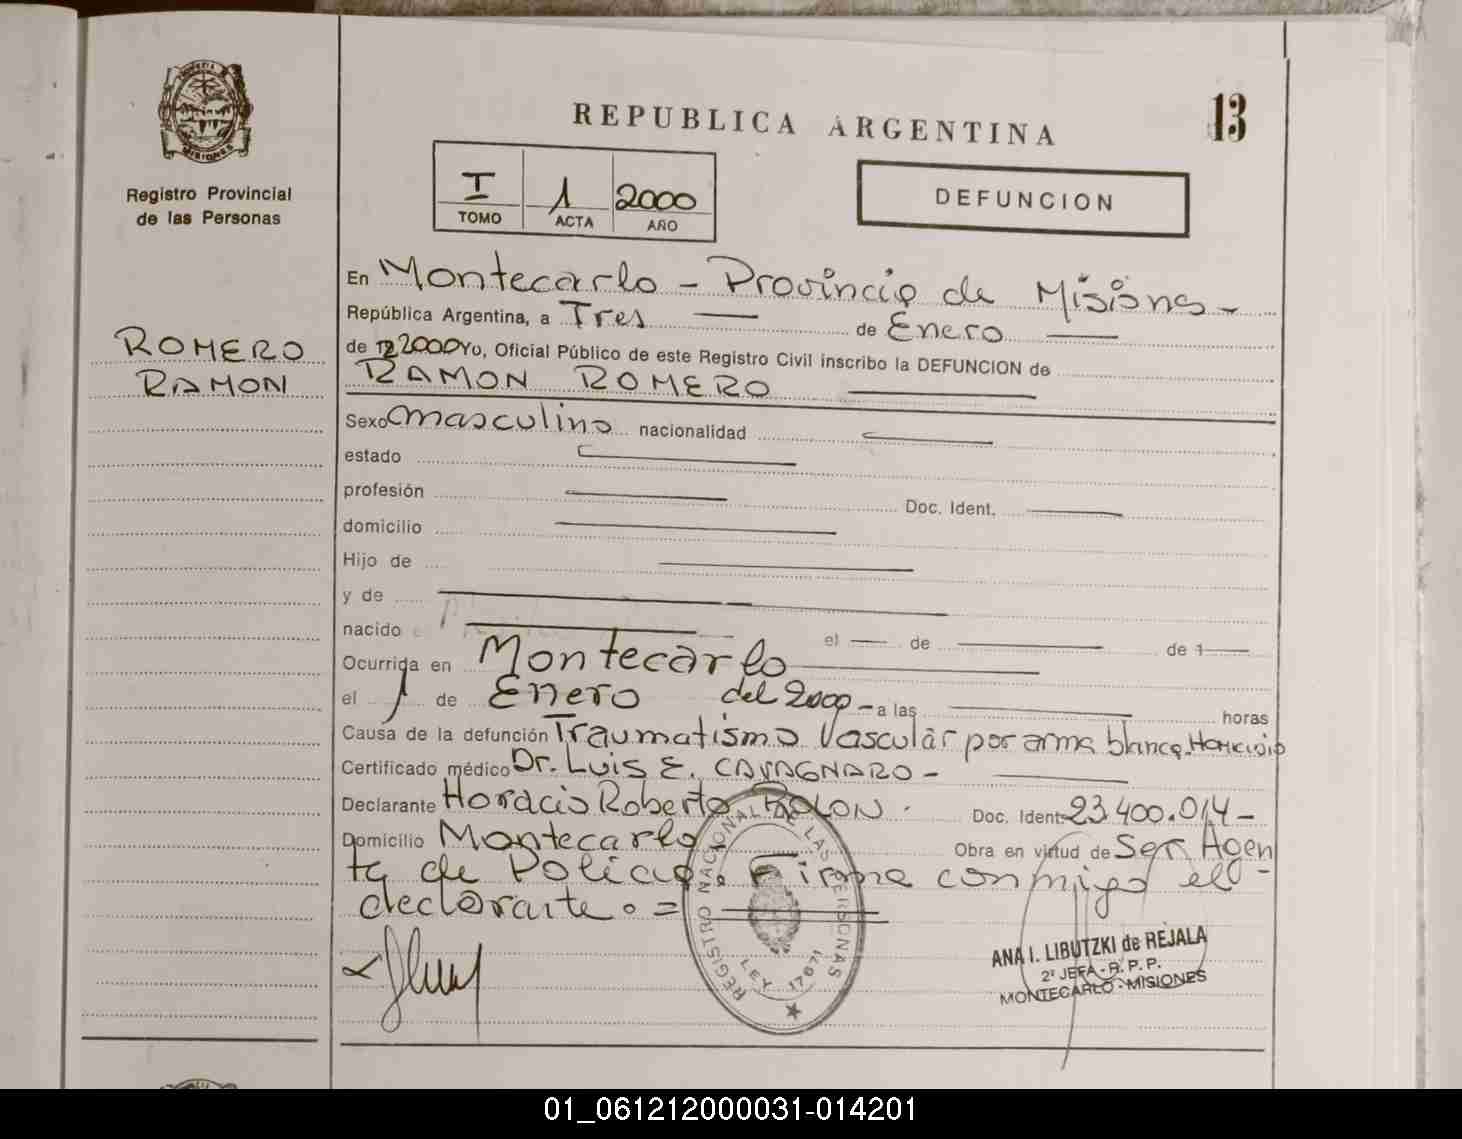 PROVINCIA DE MISIONES
Registro Provincial
de las Personas
ROMERO
RAMON
REPUBLICA ARGENTINA
13
I 1 2000
TOMO ACTA AÑO
DEFUNCION
En Montecarlo - Provincia de Misions -
República Argentina, a Tres de Enero
de 2000 Yo, Oficial Público de este Registro Civil inscribo la DEFUNCION de
RAMON ROMERO
Sexo masculino nacionalidad
estado
profesión Doc. Ident.
domicilio
Hijo de
y de
nacido el de de 1
Ocurrida en Montecarlo
el 1 de Enero del 2000 - a las horas
Causa de la defunción Traumatismo Vascular por arma blanca. Homicidio
Certificado médico Dr. Luis E. CAVAGNARO -
Declarante Horacio Roberto Doc. Ident. 23.400.014 -
Domicilio Montecarlo Obra en virtud de Ser Agen
te de Policia. Firma conmigo el
declarante. =
REGISTRO NACIONAL DE LAS PERSONAS
LEY 17671
ANA I. LIBUTZKI de REJALA
2ª JEFA - R. P. P.
MONTECARLO - MISIONES
01_061212000031-014201